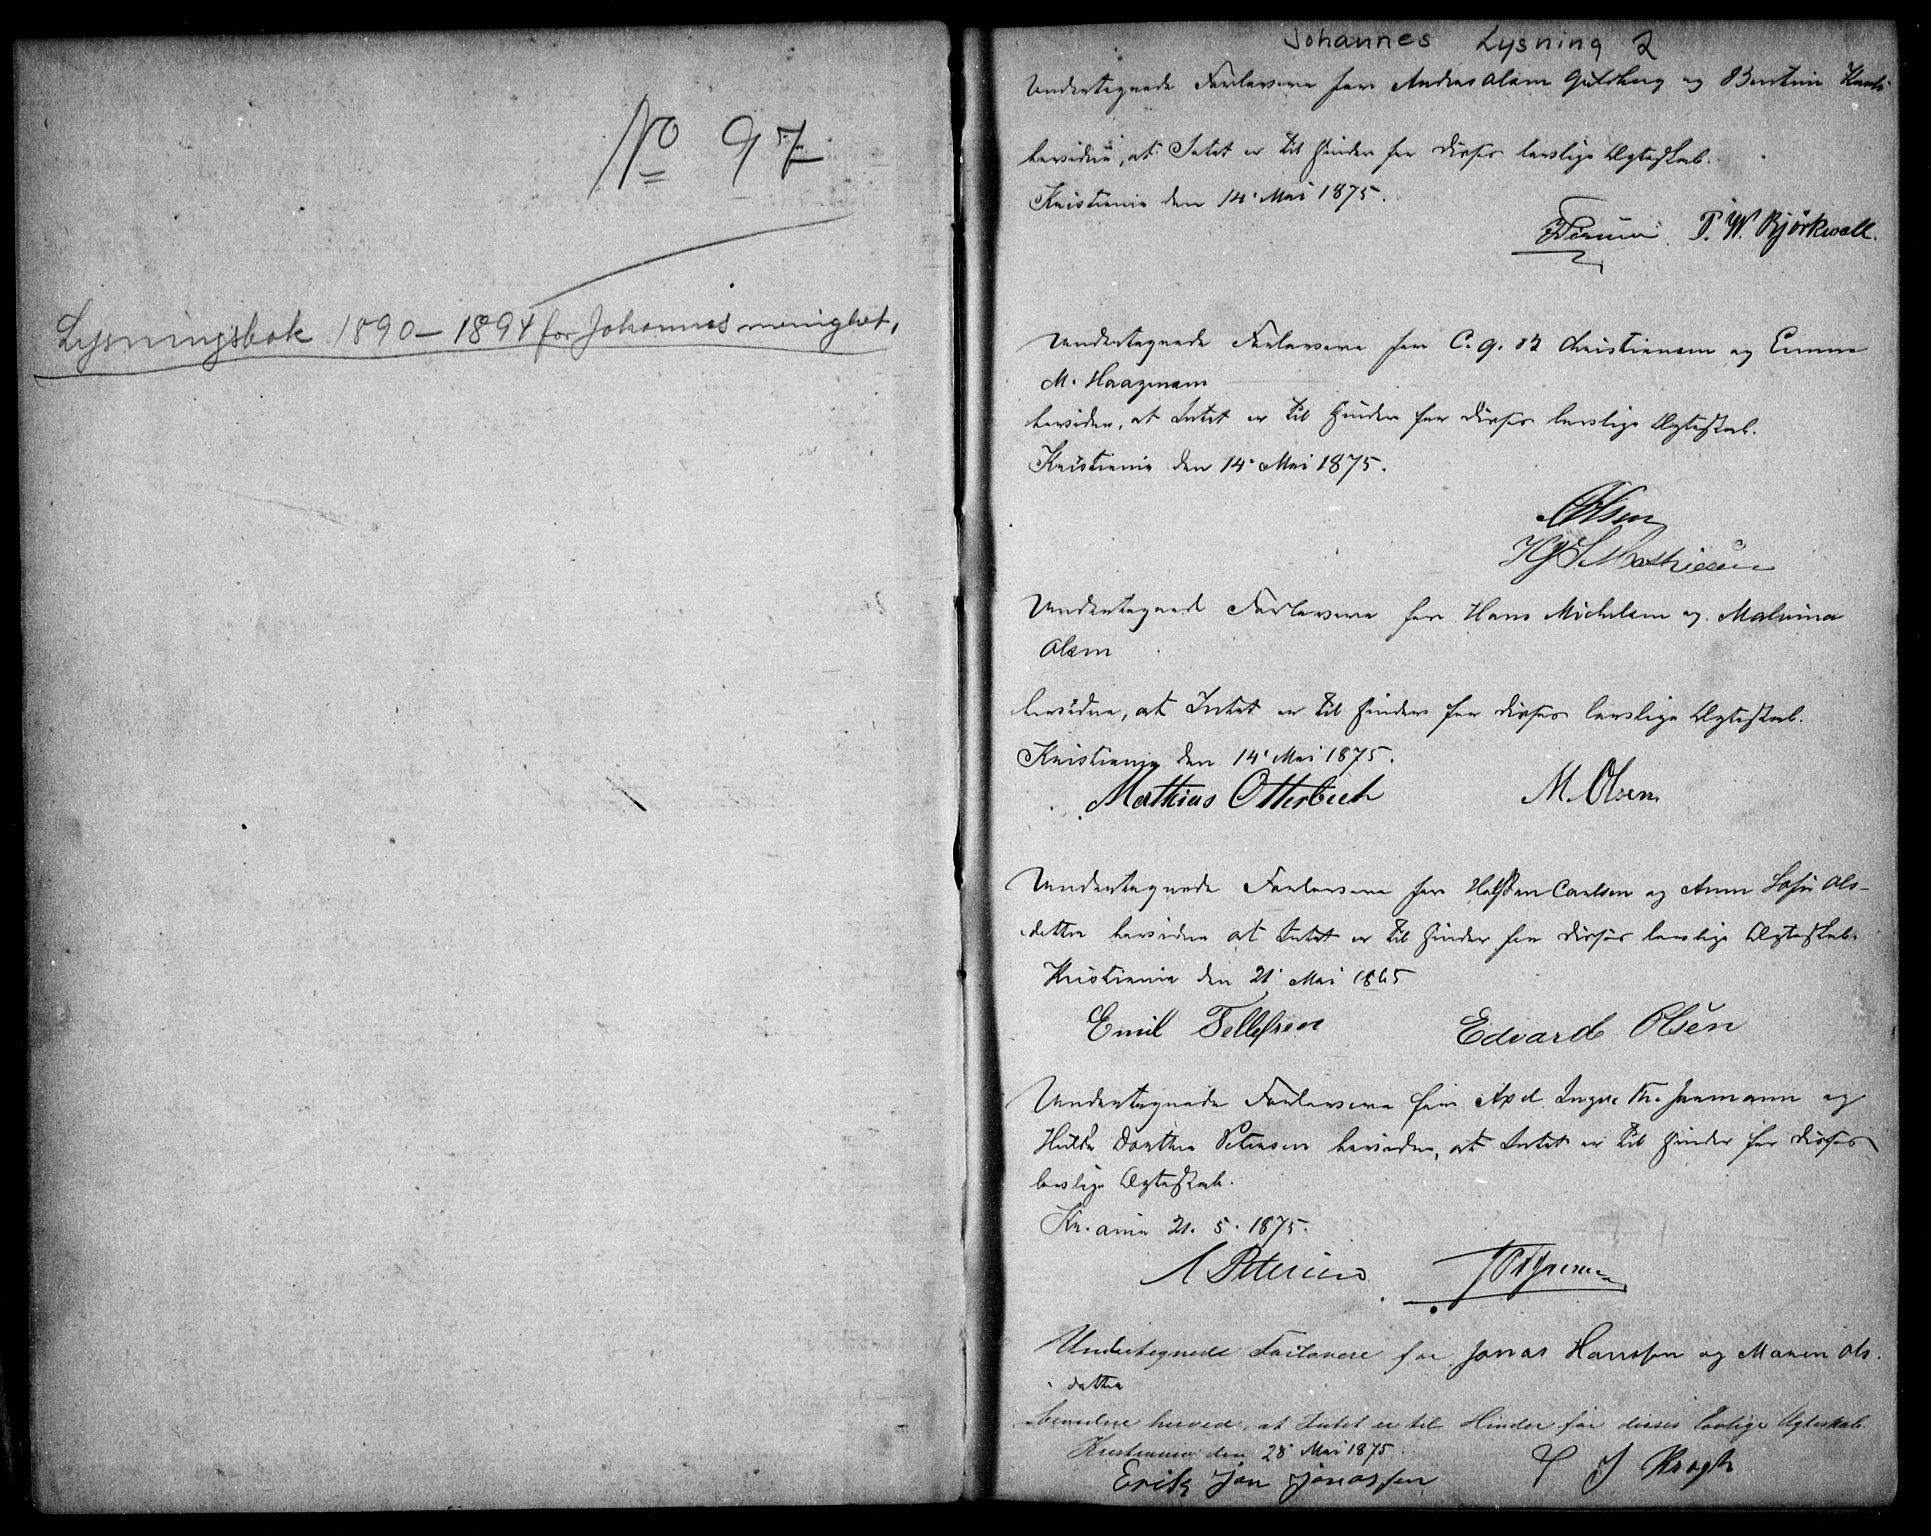 No 97
Lysningsbok 1890-1894 for Johannes menighet,
Johannes Lysning 2
Undertegnede Forlovere for Andreas Olsen Guldberg og Bentine
bevidne, at Intet er til Hinder for disses lovlige Ægteskab.
Kristiania den 14 Mai 1875.
P. W. Björkwall.
Undertegnede Forlovere for C. G. Christiansen og Emma
M. Haagmann
bevidne, at Intet er til Hinder for disses lovlige Ægteskab.
Kristiania den 14 Mai 1875.
Olsen
Mathiesen
Undertegnede Forlovere for Hans Michelsen og Malvina
Olsen
bevidne, at Intet er til Hinder for disses lovlige Ægteskab.
Kristiania den 14 Mai 1875.
Mathias Otterbech M. Olsen
Undertegnede Forlovere for Halfden Carlsen og Anne Sofie Ols-
datter bevidne at Intet er til Hinder for disses lovlige Ægteskab.
Kristiania den 21 Mai 1865
Emil Tellefsen Edvard Olsén
Undertegnede Forlovere for Axel Ingv. Th. Jansmann og
Hulda Dorthea Petersen bevidne, at Intet er til Hinder for disses
lovlige Ægteskab.
Kr.ania 21. 5. 1875.
A Petersen
Undertegnede Forlovere for Jonas Hanssen og Maren Ols.
datter
bevidne herved, at Intet er til Hinder for disses lovlige Ægteskab.
Kristiania den 28 Mai 1875.
Erik Jon Jonassen J Krogh